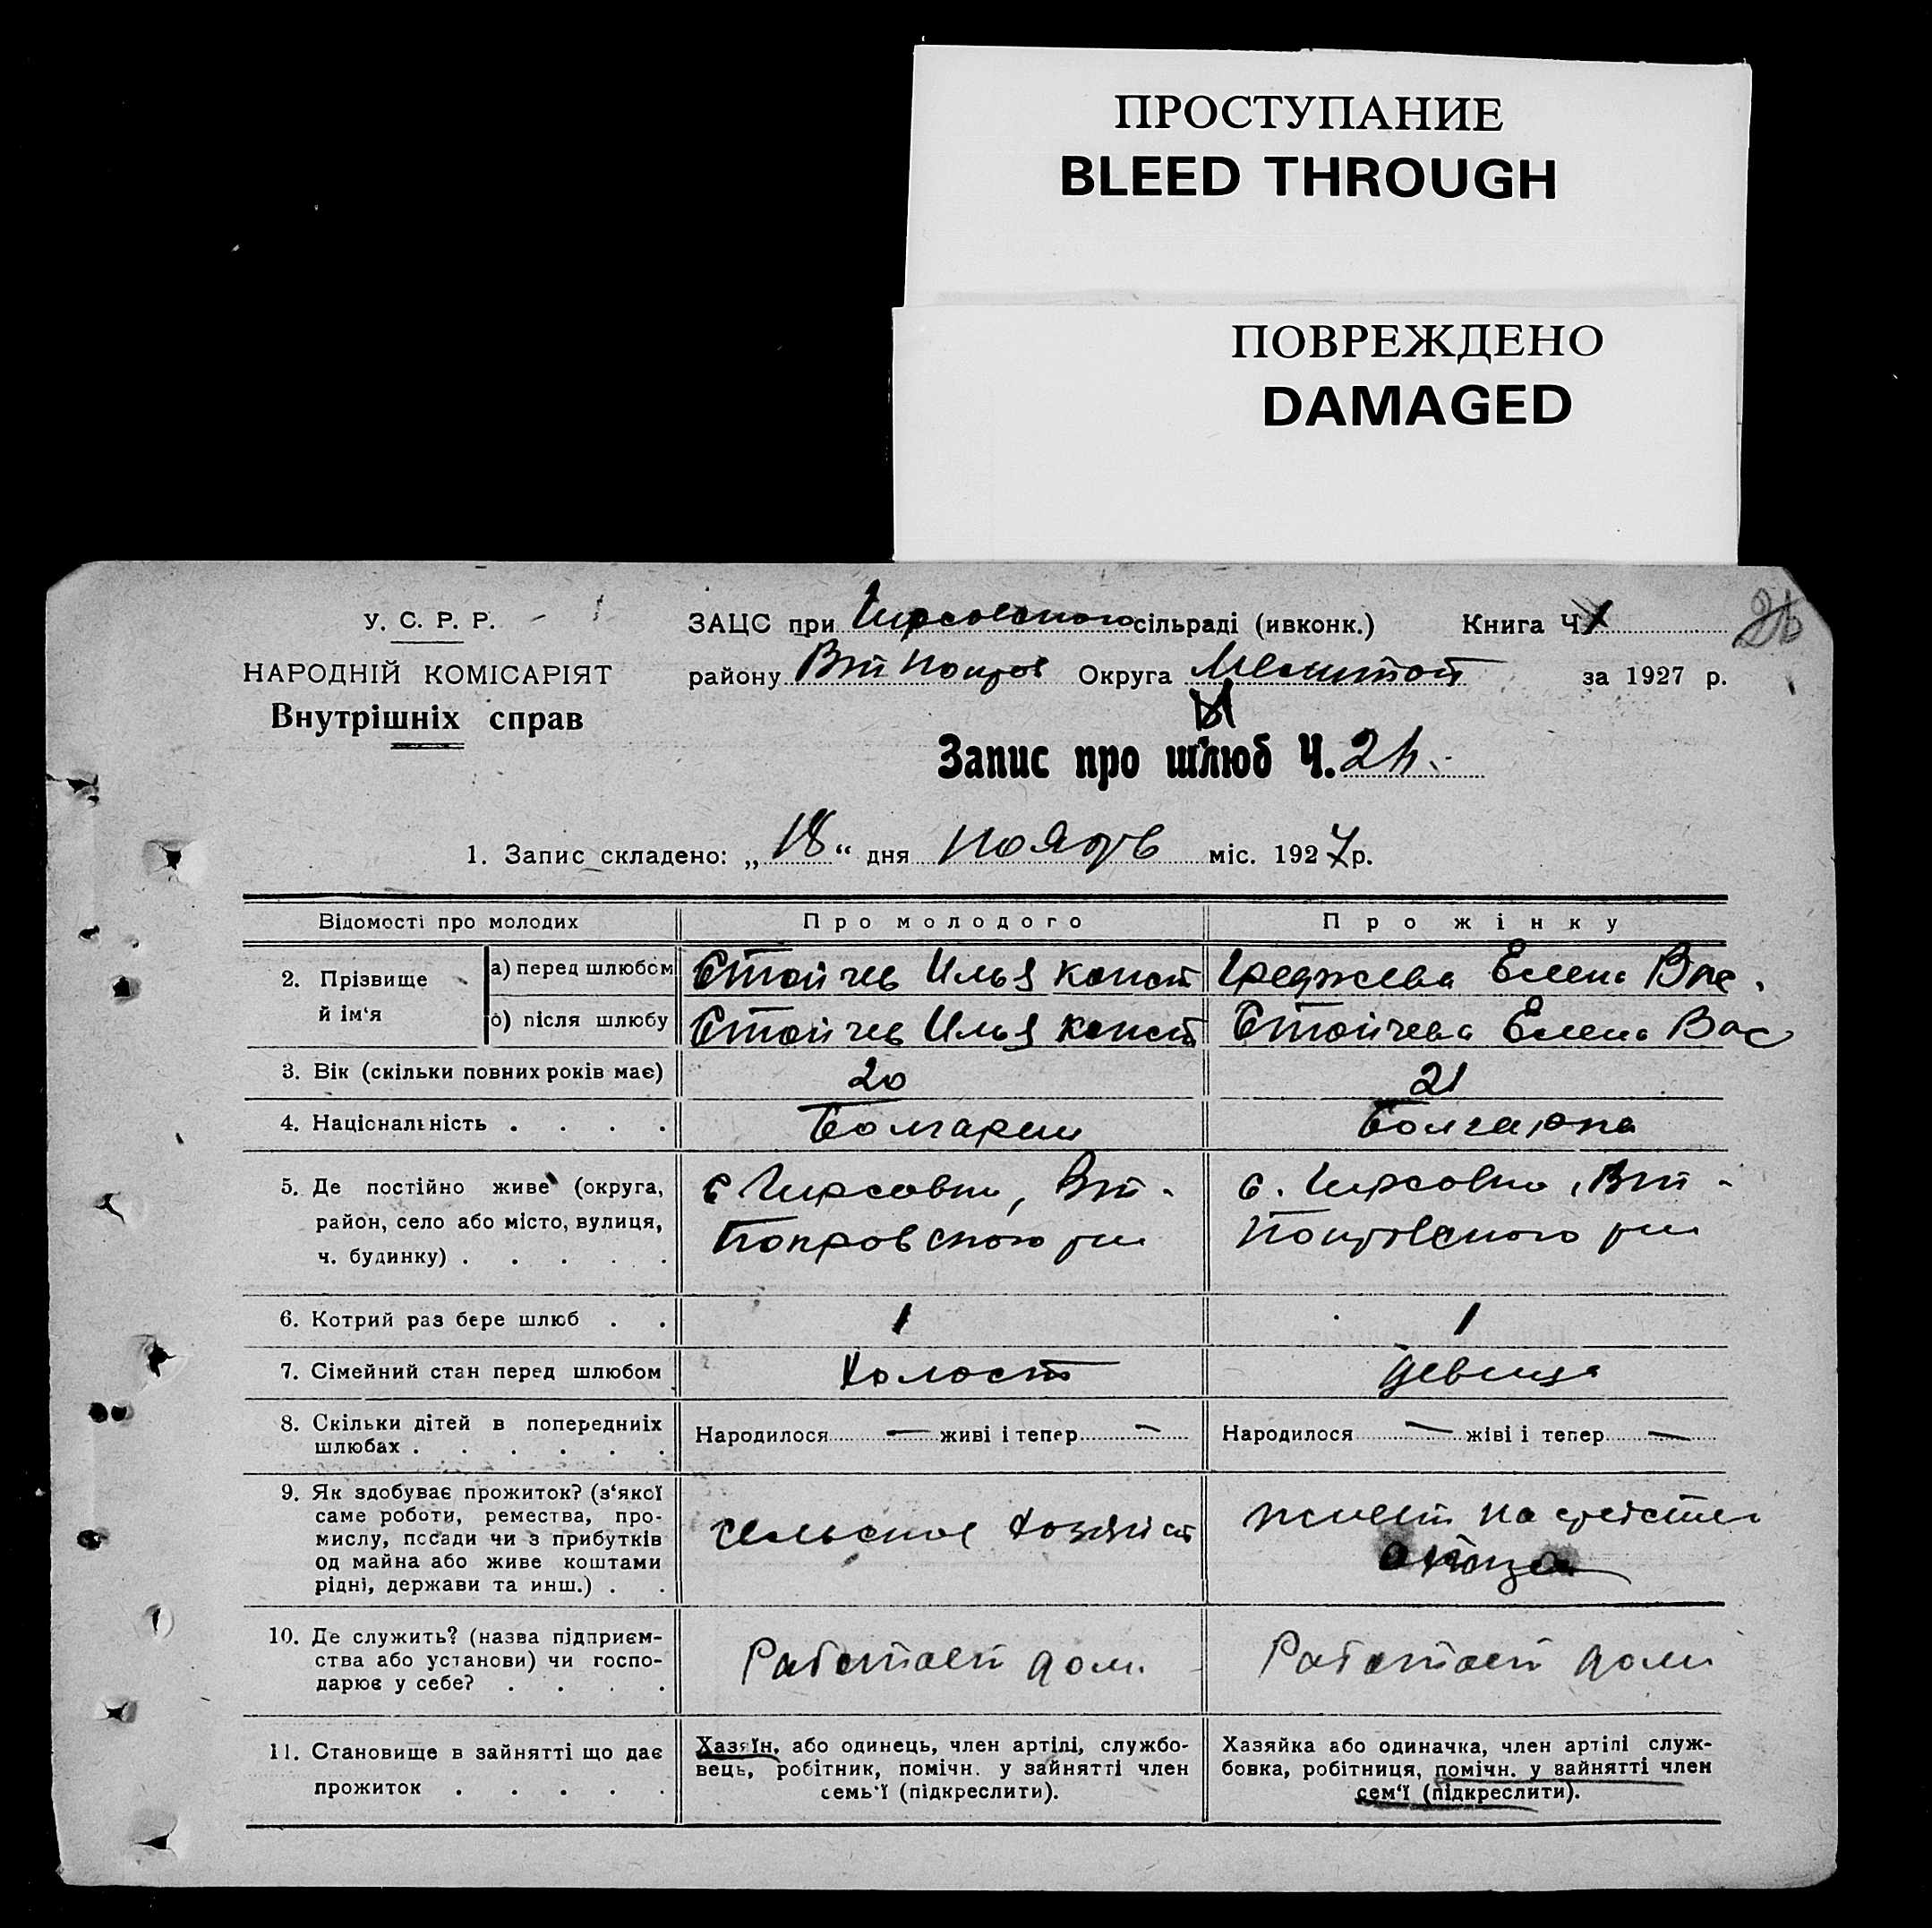 ПРОСТУПАНИЕ
BLEED THROUGH
ПОВРЕЖДЕНО
DAMAGED
У. С. Р. Р.
НАРОДНІЙ КОМІСАРІЯТ
Внутрішніх справ
ЗАЦС при Гирсовского сільраді (ивконк.) Книга Ч.
району Вт Покров Округа Мелитоп за 1927 р.
Запис про шлюб Ч. 24.
1. Запис складено: „18“ дня Ноябрь міс. 1927 р.
Відомості про молодих Про молодого Про жінку
2. Прізвище й ім'я а) перед шлюбом Стойчев Илья Конст Греджева Елена Вас.
б) після шлюбу Стойчев Илья Конст Стойчева Елена Вас
3. Вік (скільки повних років має) 20 21
4. Національність . . . . Болгарин Болгарка
5. Де постійно живе (округа, с Гирсовки, Вт- с. Гирсовка, Вт-
район, село або місто, вулиця, Покровского рна Покровского рна
ч. будинку) . . . . .
6. Котрий раз бере шлюб . . 1 1
7. Сімейний стан перед шлюбом Холост Девица
8. Скільки дітей в попередниіх Народилося — живі і тепер — Народилося — жіві і тепер —
шлюбах . . . . . .
9. Як здобуває прожиток? (з'якої
саме роботи, ремества, про- сельское хозяйст живет на средства
мислу, посади чи з прибутків отца
од майна або живе коштами
рідні, держави та инш.) . .
10. Де служить? (назва підприєм-
ства або установи) чи госпо- Работает дома Работает дома
дарює у себе? . . . .
11. Становище в зайнятті що дає Хазяїн, або одинець, член артілі, службо- Хазяйка або одиначка, член артілі служ-
прожиток . . . . . вець, робітник, помічн. у зайнятті член бовка, робітниця, помічн. у зайнятті член
семь'ї (підкреслити). сем'ї (підкреслити).